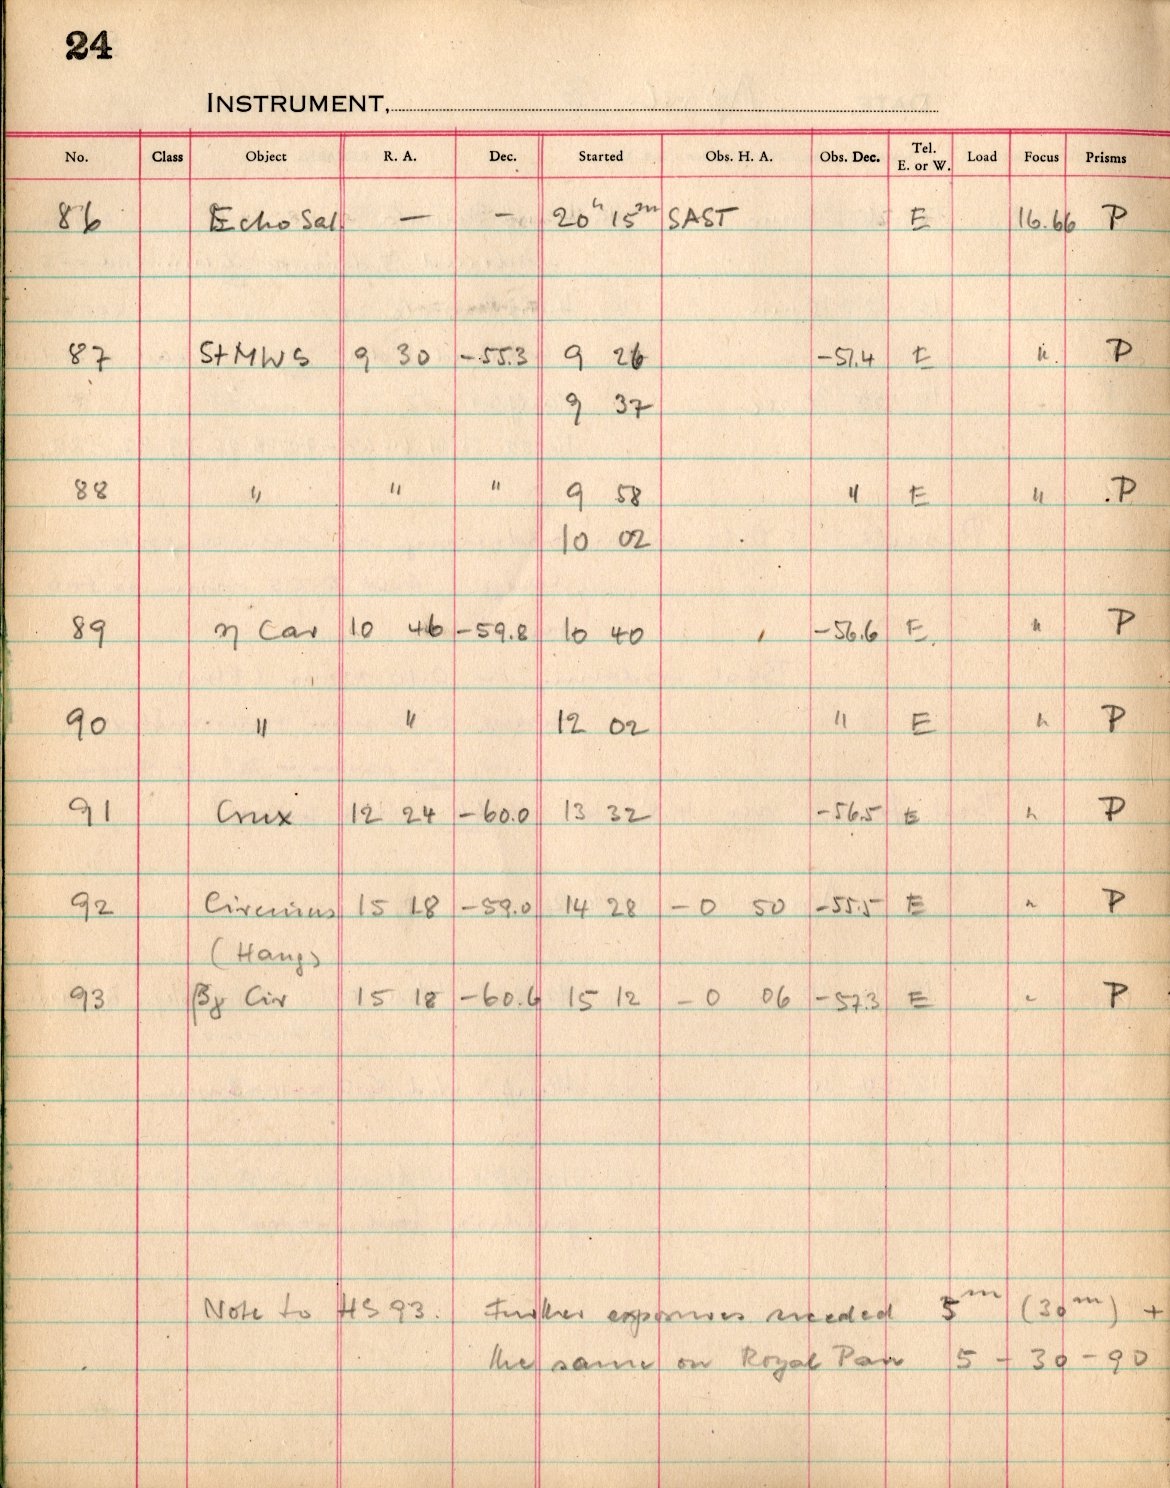 24
INSTRUMENT,
No. Class Object R. A. Dec. Started Obs. H. A. Obs. Dec. Tel. E. or W. Load Focus Prisms
86 Echo Sat. — — 20h 15m SAST E 16.66 P
87 StMWS 9 30 -55.3 9 26 -51.4 E " P
9 37
88 " " " 9 58 " E " P
10 02
89 η Car 10 46 -59.8 10 40 -56.6 E " P
90 " " 12 02 " E " P
91 Crux 12 24 -60.0 13 32 -56.5 E " P
92 Circinus 15 18 -59.0 14 28 -0 50 -55.5 E " P
93 βγ Cir 15 18 -60.6 15 12 -0 06 -57.3 E " P
Note to HS 93. Further exposures needed 5m (30m) +
the same on Royal Pan 5 - 30 - 90